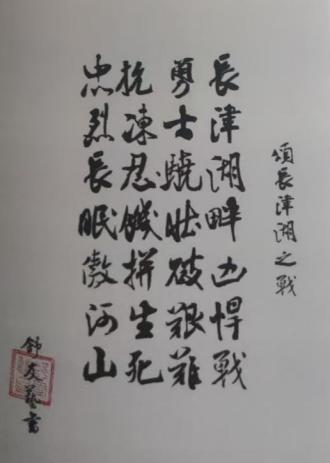 頌長津湖之戰
長津湖畔凶悍戰
勇士驍壯破艱難
抗凍忍饑拼生死
忠烈長眠傲河山
友藝書